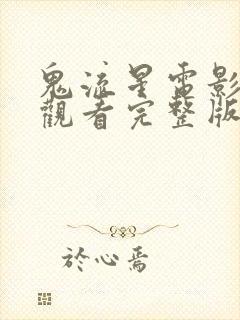 鬼流星電影
觀看完整版
於心焉